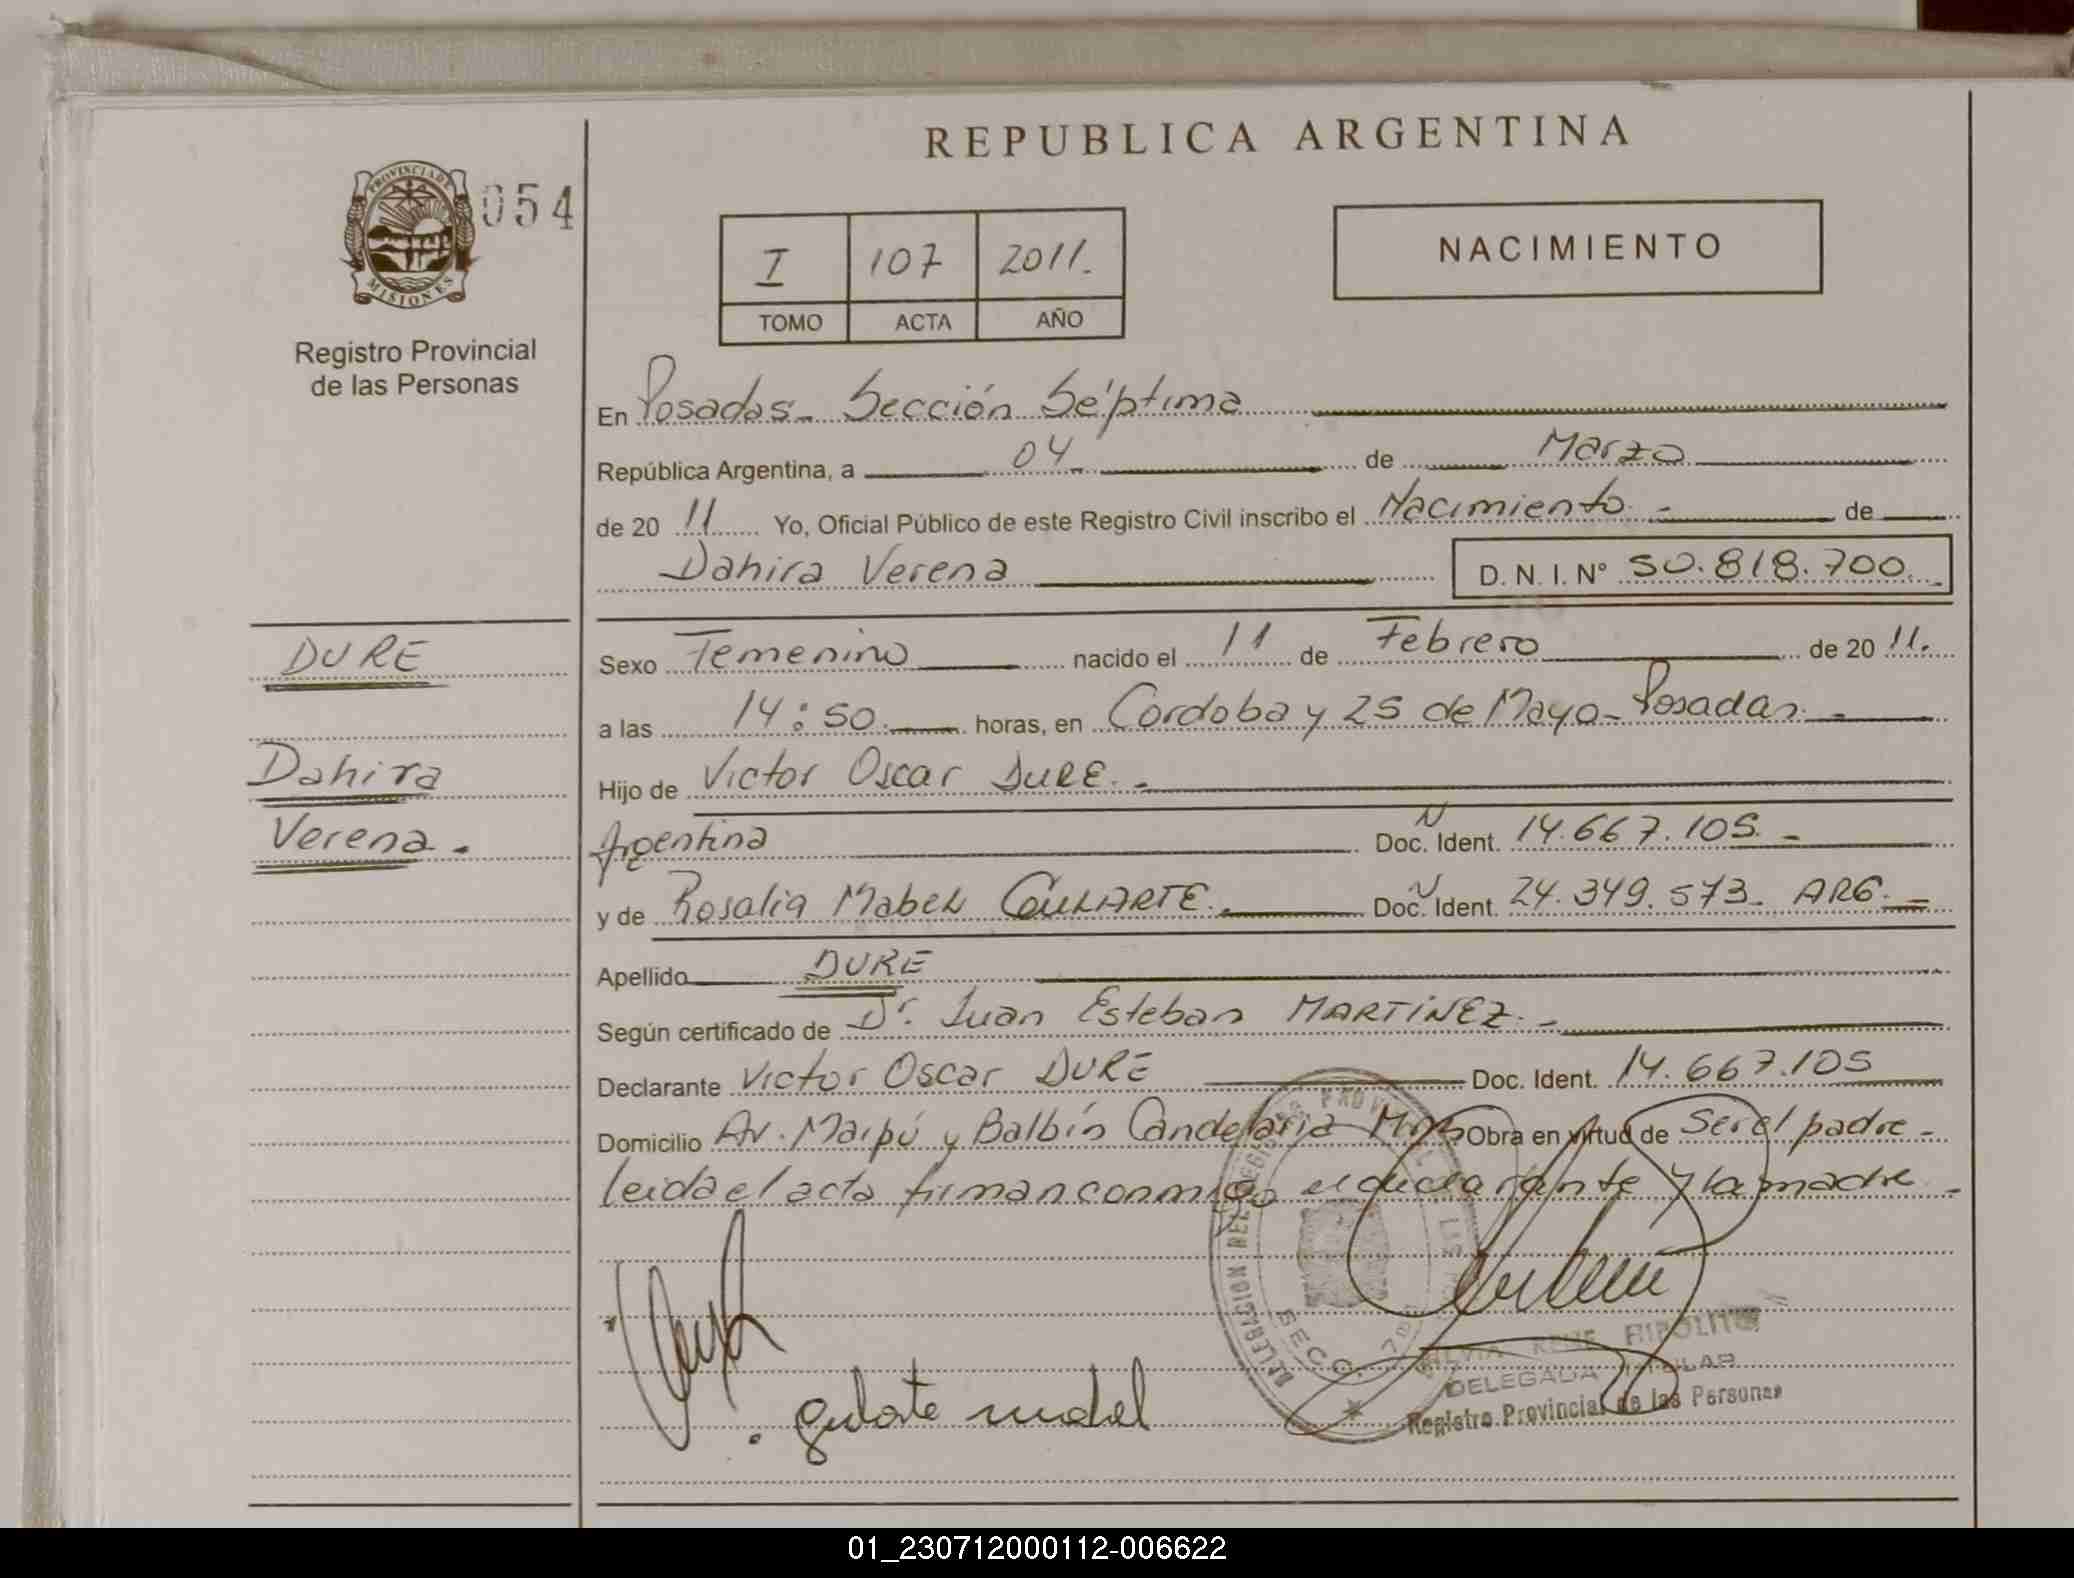 REPUBLICA ARGENTINA
PROVINCIA DE
MISIONES
054
Registro Provincial
de las Personas
I 107 2011.
TOMO ACTA AÑO
NACIMIENTO
En Posadas- Sección Séptima
República Argentina, a 04 de Marzo
de 20 11 Yo, Oficial Público de este Registro Civil inscribo el Nacimiento - de
Dahira Verena D. N. I. N° 50.818.700.-
DURE
Dahira
Verena.
Sexo Femenino nacido el 11 de Febrero de 20 11.
a las 14:50 horas, en Cordoba y 25 de Mayo- Posadas.-
Hijo de Victor Oscar DURE.-
Argentina Doc. N Ident. 14.667.105.-
y de Rosalia Mabel GULARTE. Doc. N Ident. 24.349.573. ARG.=
Apellido DURE
Según certificado de Dr. Juan Esteban MARTiNEZ.-
Declarante Victor Oscar DURE Doc. Ident. 14.667.105
Domicilio Av. Maipú y Balbín Candelaria Mnes Obra en virtud de Ser el padre-
leida el acta firman conmigo el declarante y la madre-
DELEGACION REGISTRO PROVINCIAL DE LAS
SECC. 7
gularte mabel
SILVIA RENE HIPOLITO
DELEGADA TITULAR
Registro Provincial de las Personas
01_230712000112-006622